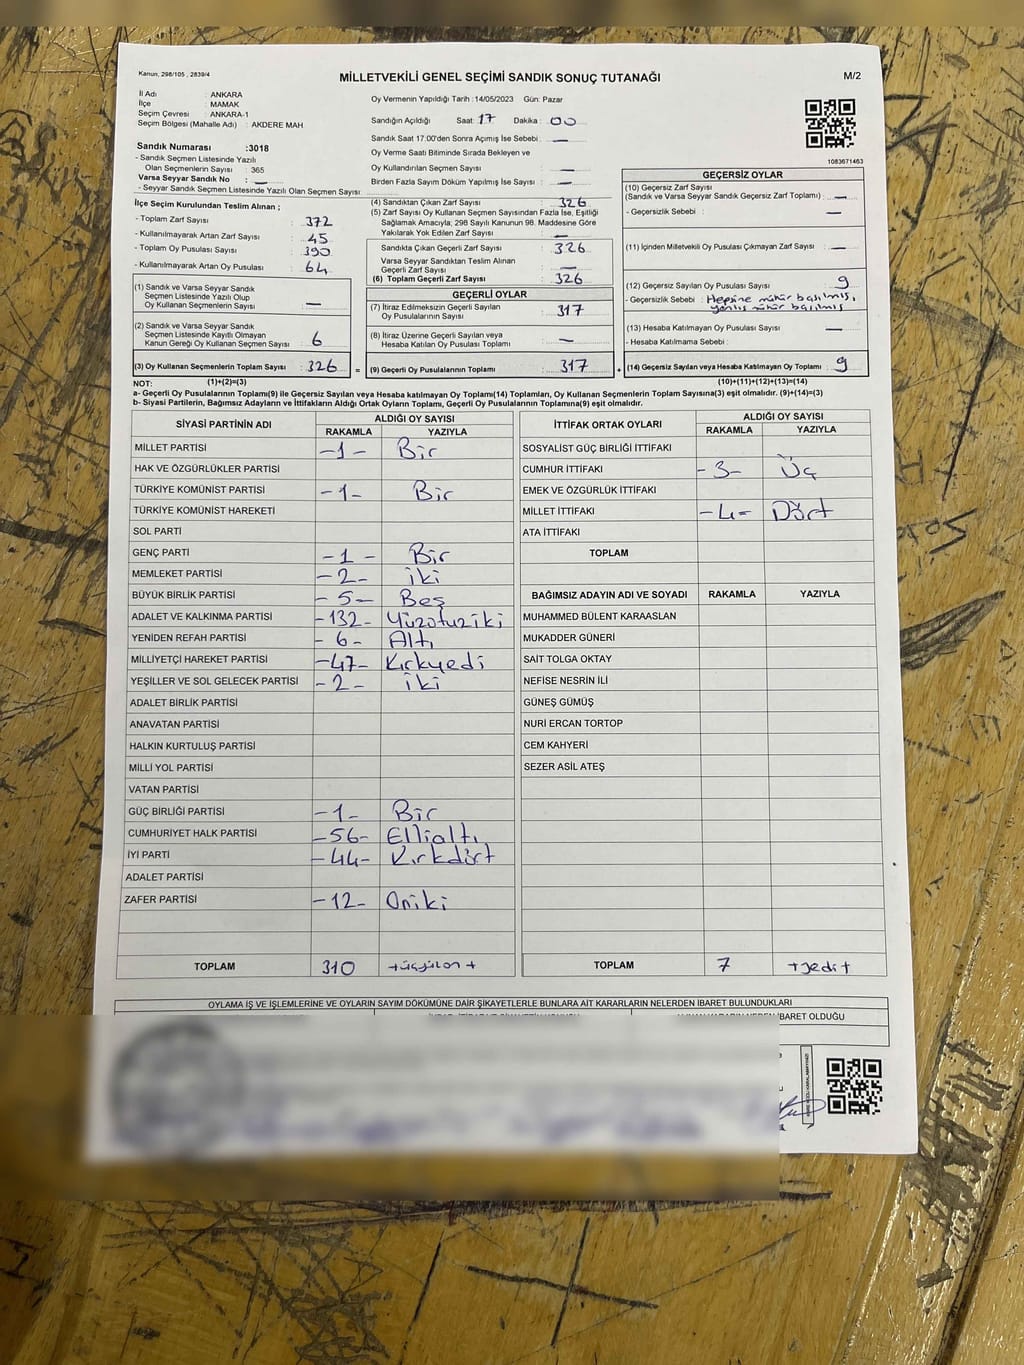 Kanun, 298/105 , 2839/4
MİLLETVEKİLİ GENEL SEÇİMİ SANDIK SONUÇ TUTANAĞI
M/2
İl Adı : ANKARA
İlçe : MAMAK
Seçim Çevresi : ANKARA-1
Seçim Bölgesi (Mahalle Adı) : AKDERE MAH
Sandık Numarası :3018
- Sandık Seçmen Listesinde Yazılı
Olan Seçmenlerin Sayısı : 365
Varsa Seyyar Sandık No : —
- Seyyar Sandık Seçmen Listesinde Yazılı Olan Seçmen Sayısı :
Oy Vermenin Yapıldığı Tarih :14/05/2023 Gün: Pazar
Sandığın Açıldığı Saat: 17 Dakika : 00
Sandık Saat 17.00'den Sonra Açımış İse Sebebi : —
Oy Verme Saati Bitiminde Sırada Bekleyen ve
Oy Kullandırılan Seçmen Sayısı : —
Birden Fazla Sayım Döküm Yapılmış İse Sayısı : —
1083671463
İlçe Seçim Kurulundan Teslim Alınan ;
- Toplam Zarf Sayısı : 372
- Kullanılmayarak Artan Zarf Sayısı : 45
- Toplam Oy Pusulası Sayısı : 390
- Kullanılmayarak Artan Oy Pusulası : 64
(1) Sandık ve Varsa Seyyar Sandık
Seçmen Listesinde Yazılı Olup
Oy Kullanan Seçmenlerin Sayısı : —
(2) Sandık ve Varsa Seyyar Sandık
Seçmen Listesinde Kayıtlı Olmayan
Kanun Gereği Oy Kullanan Seçmen Sayısı : 6
(3) Oy Kullanan Seçmenlerin Toplam Sayısı : 326 =
(4) Sandıktan Çıkan Zarf Sayısı : 326
(5) Zarf Sayısı Oy Kullanan Seçmen Sayısından Fazla İse, Eşitliği
Sağlamak Amacıyla; 298 Sayılı Kanunun 98. Maddesine Göre
Yakılarak Yok Edilen Zarf Sayısı : —
Sandıkta Çıkan Geçerli Zarf Sayısı : 326
Varsa Seyyar Sandıktan Teslim Alınan
Geçerli Zarf Sayısı : —
(6) Toplam Geçerli Zarf Sayısı : 326
GEÇERLİ OYLAR
(7) İtiraz Edilmeksizin Geçerli Sayılan
Oy Pusulalarının Sayısı : 317
(8) İtiraz Üzerine Geçerli Sayılan veya
Hesaba Katılan Oy Pusulası Toplamı : —
(9) Geçerli Oy Pusulalarının Toplamı : 317 +
GEÇERSİZ OYLAR
(10) Geçersiz Zarf Sayısı
(Sandık ve Varsa Seyyar Sandık Geçersiz Zarf Toplamı) : —
- Geçersizlik Sebebi : —
(11) İçinden Milletvekili Oy Pusulası Çıkmayan Zarf Sayısı : —
(12) Geçersiz Sayılan Oy Pusulası Sayısı : 9
- Geçersizlik Sebebi : Hepsine mühür basılmış,
yanlış mühür basılmış
(13) Hesaba Katılmayan Oy Pusulası Sayısı : —
- Hesaba Katılmama Sebebi :
(14) Geçersiz Sayılan veya Hesaba Katılmayan Oy Toplamı : 9
NOT: (1)+(2)=(3) (10)+(11)+(12)+(13)=(14)
a- Geçerli Oy Pusulalarının Toplamı(9) ile Geçersiz Sayılan veya Hesaba katılmayan Oy Toplamı(14) Toplamları, Oy Kullanan Seçmenlerin Toplam Sayısına(3) eşit olmalıdır. (9)+(14)=(3)
b- Siyasi Partilerin, Bağımsız Adayların ve İttifakların Aldığı Ortak Oyların Toplamı, Geçerli Oy Pusulalarının Toplamına(9) eşit olmalıdır.
SİYASİ PARTİNİN ADI ALDIĞI OY SAYISI
RAKAMLA YAZIYLA
MİLLET PARTİSİ -1- Bir
HAK VE ÖZGÜRLÜKLER PARTİSİ
TÜRKİYE KOMÜNİST PARTİSİ -1- Bir
TÜRKİYE KOMÜNİST HAREKETİ
SOL PARTİ
GENÇ PARTİ -1- Bir
MEMLEKET PARTİSİ -2- İki
BÜYÜK BİRLİK PARTİSİ -5- Beş
ADALET VE KALKINMA PARTİSİ -132- Yüzotuziki
YENİDEN REFAH PARTİSİ -6- Altı
MİLLİYETÇİ HAREKET PARTİSİ -47- Kırkyedi
YEŞİLLER VE SOL GELECEK PARTİSİ -2- İki
ADALET BİRLİK PARTİSİ
ANAVATAN PARTİSİ
HALKIN KURTULUŞ PARTİSİ
MİLLİ YOL PARTİSİ
VATAN PARTİSİ
GÜÇ BİRLİĞİ PARTİSİ -1- Bir
CUMHURİYET HALK PARTİSİ -56- Ellialtı
İYİ PARTİ -44- Kırkdört
ADALET PARTİSİ
ZAFER PARTİSİ -12- Oniki
TOPLAM 310 +üçyüzon+
İTTİFAK ORTAK OYLARI ALDIĞI OY SAYISI
RAKAMLA YAZIYLA
SOSYALİST GÜÇ BİRLİĞİ İTTİFAKI
CUMHUR İTTİFAKI -3- Üç
EMEK VE ÖZGÜRLÜK İTTİFAKI
MİLLET İTTİFAKI -4- Dört
ATA İTTİFAKI
TOPLAM
BAĞIMSIZ ADAYIN ADI VE SOYADI RAKAMLA YAZIYLA
MUHAMMED BÜLENT KARAASLAN
MUKADDER GÜNERİ
SAİT TOLGA OKTAY
NEFİSE NESRİN İLİ
GÜNEŞ GÜMÜŞ
NURİ ERCAN TORTOP
CEM KAHYERİ
SEZER ASİL ATEŞ
TOPLAM 7 +yedi+
OYLAMA İŞ VE İŞLEMLERİNE VE OYLARIN SAYIM DÖKÜMÜNE DAİR ŞİKAYETLERLE BUNLARA AİT KARARLARIN NELERDEN İBARET BULUNDUKLARI
İBARET OLDUĞU